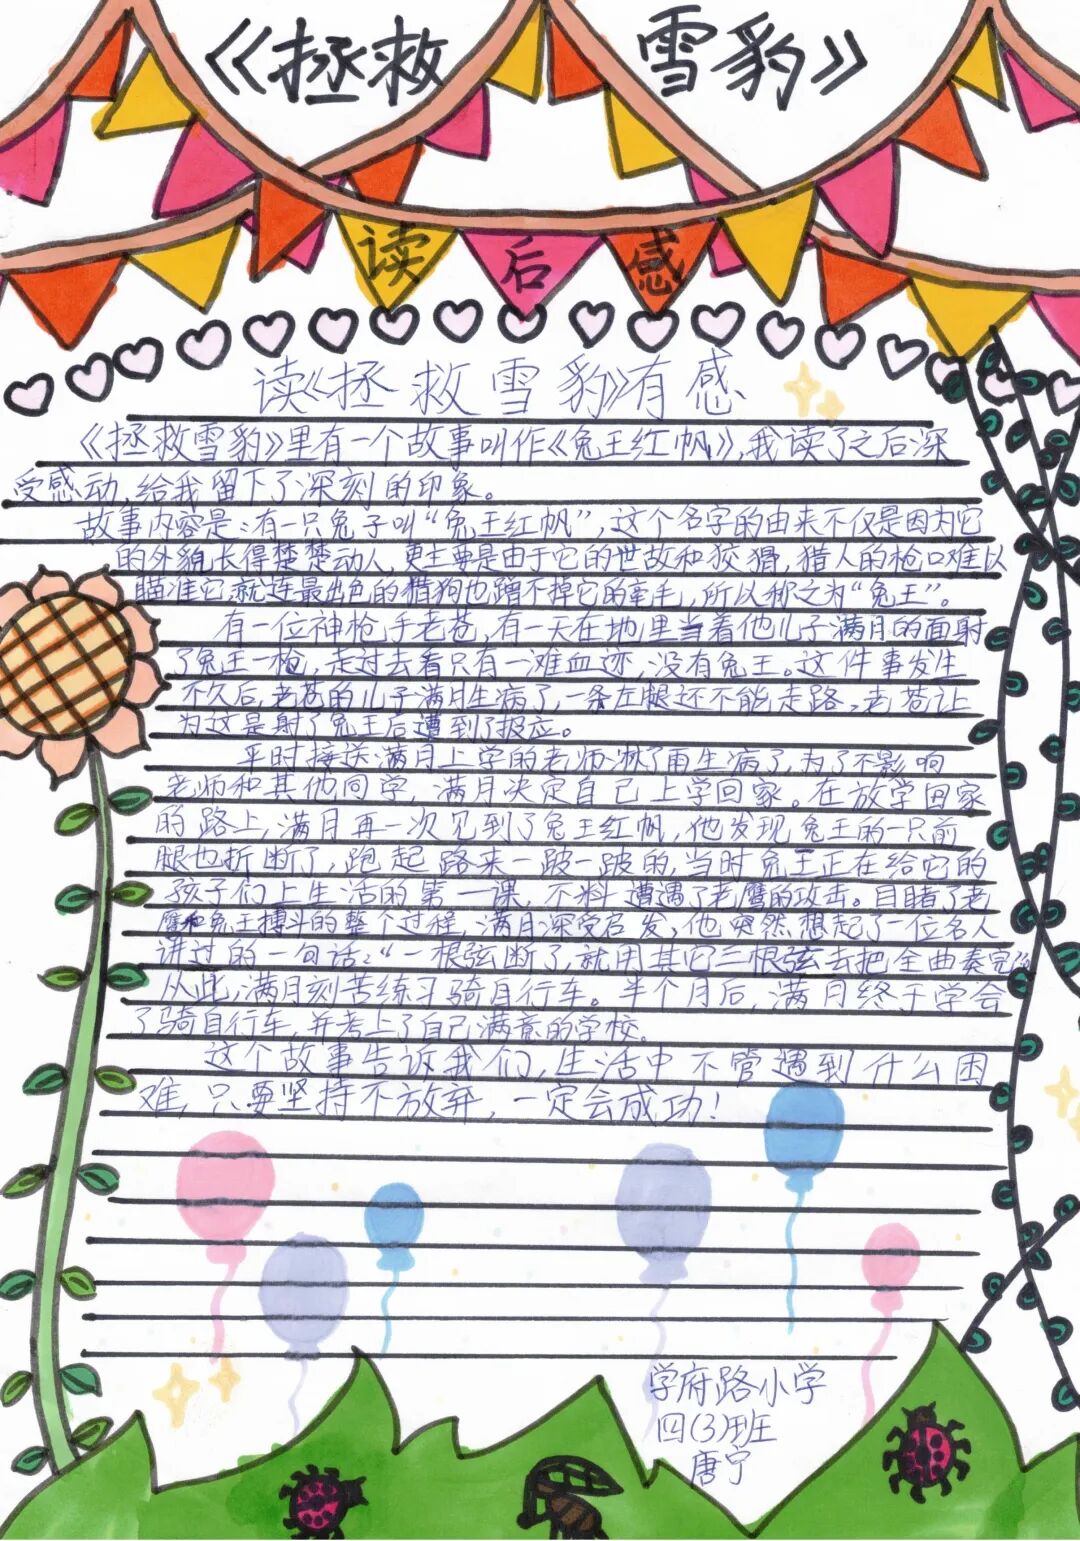 《拯救雪豹》
读后感
读《拯救雪豹》有感
《拯救雪豹》里有一个故事叫作《兔王红帆》,我读了之后深
受感动,给我留下了深刻的印象。
故事内容是:有一只兔子叫“兔王红帆”,这个名字的由来不仅是因为它
的外貌长得楚楚动人,更主要是由于它的世故和狡猾,猎人的枪口难以
瞄准它,就连最出色的猎狗也蹭不掉它的毫毛,所以称之为“兔王”。
有一位神枪手老苍,有一天在地里当着他儿子满月的面射
了兔王一枪,走过去看只有一滩血迹,没有兔王。这件事发生
不久后,老苍的儿子满月生病了,一条左腿还不能走路,老苍让
为这是射了兔王后遭到了报应。
平时接送满月上学的老师淋了雨生病了,为了不影响
老师和其他同学,满月决定自己上学回家。在放学回家
的路上,满月再一次见到了兔王红帆,他发现兔王的一只前
腿也折断了,跑起路来一跛一跛的,当时兔王正在给它的
孩子们上生活的第一课,不料遭遇了老鹰的攻击。目睹了老
鹰和兔王搏斗的整个过程,满月深受启发,他突然想起了一位名人
讲过的一句话:“一根弦断了,就用其它三根弦去把全曲奏完”。
从此,满月刻苦练习骑自行车。半个月后,满月终于学会
了骑自行车,并考上了自己满意的学校。
这个故事告诉我们,生活中不管遇到什么困
难,只要坚持不放弃,一定会成功!
学府路小学
四(3)班
唐宁